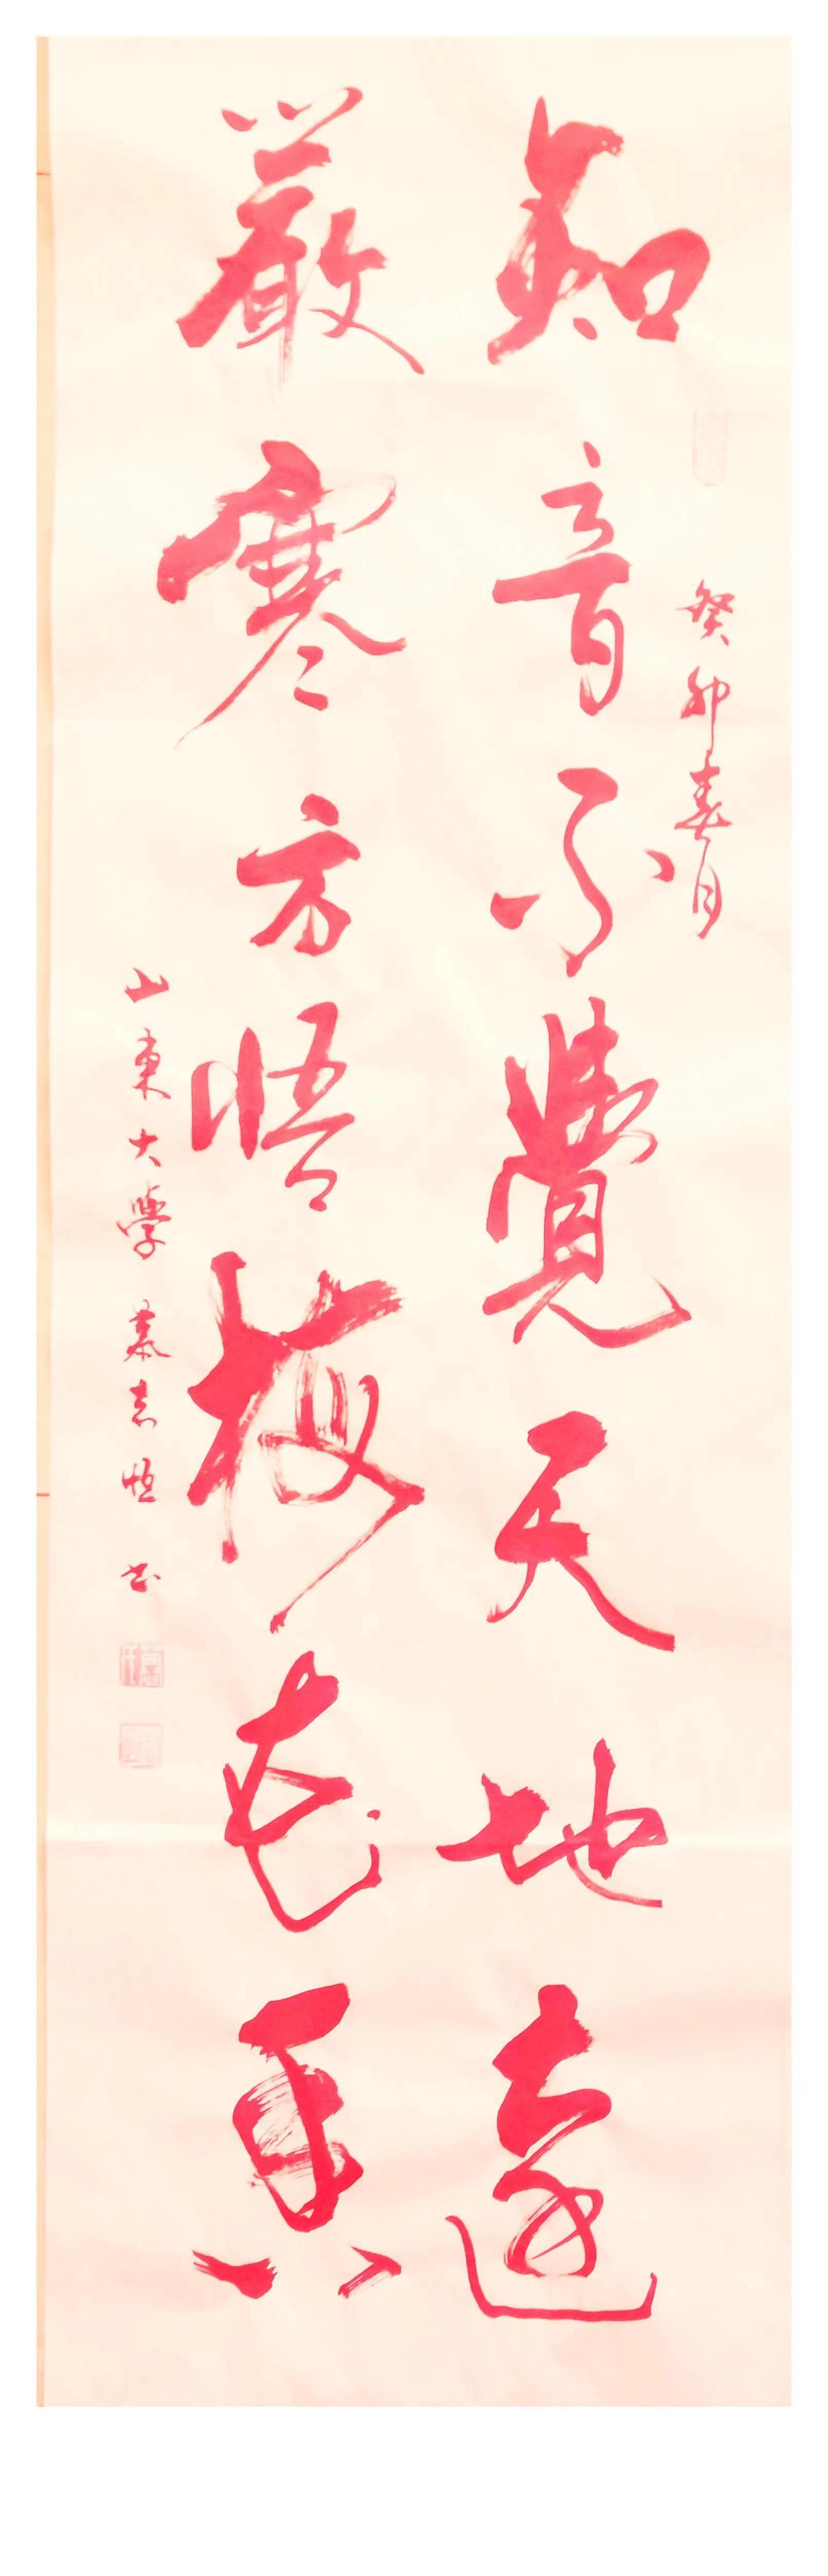 癸卯春月
知音不覺天地遠
嚴寒方悟梅花真
山東大學 志恒 书